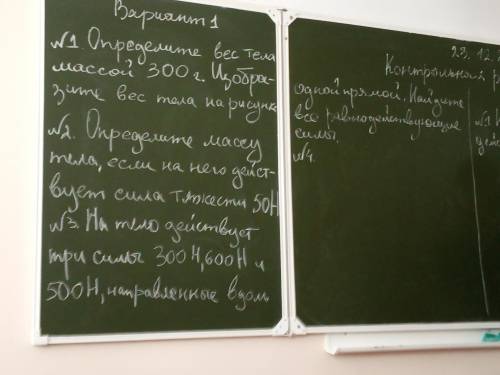 Вариант 1
№1 Определите вес тела
массой 300 г. Изобра-
зите вес тела на рисунке
№2. Определите массу
тела, если на него дейст-
вует сила тяжести 50Н
№3. На тело действует
три силы 300 Н, 600 Н и
500 Н, направленные вдоль
23.12.
Контрольная р
одной прямой. Найдите
все равнодействующие
силы.
№4.
№1